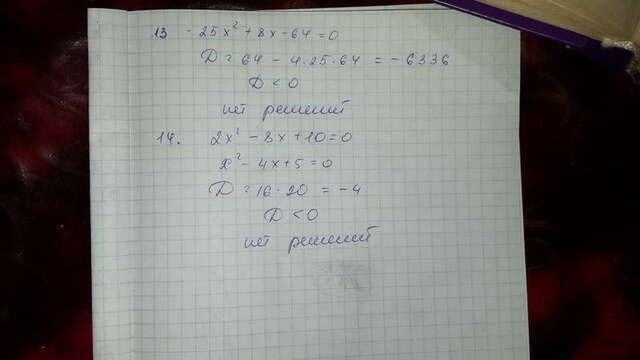 13 -25x² + 8x - 64 = 0
D = 64 - 4·25·64 = -6336
D < 0
нет решений
14. 2x² - 8x + 10 = 0
x² - 4x + 5 = 0
D = 16 - 20 = -4
D < 0
нет решений